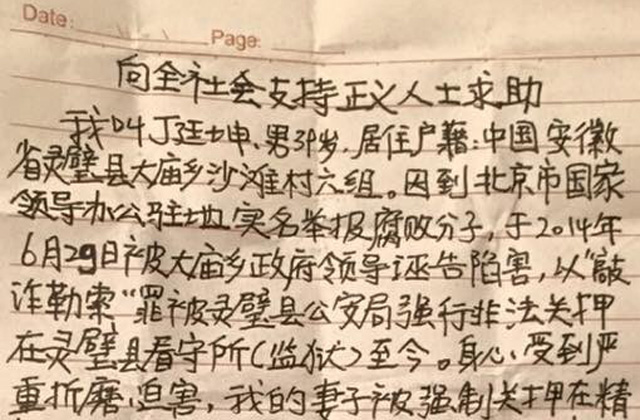 Date: Page:
向全社会支持正义人士求助
我叫丁廷坤、男39岁,居住户籍:中国安徽
省灵璧县大庙乡沙滩村六组。因到北京市国家
领导办公驻地实名举报腐败分子,于2014年
6月29日被大庙乡政府领导诬告陷害,以“敲
诈勒索”罪被灵璧县公安局强行非法关押
在灵璧县看守所(监狱)至今。身心受到严
重折磨、迫害,我的妻子被强制关押在精